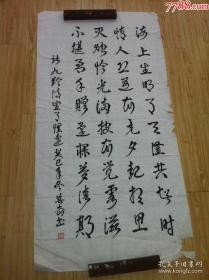 海上生明月天涯共此时
情人怨遥夜竟夕起相思
灭烛怜光满披衣觉露滋
不堪盈手赠还寝梦佳期
张九龄诗望月怀远癸巳年冬